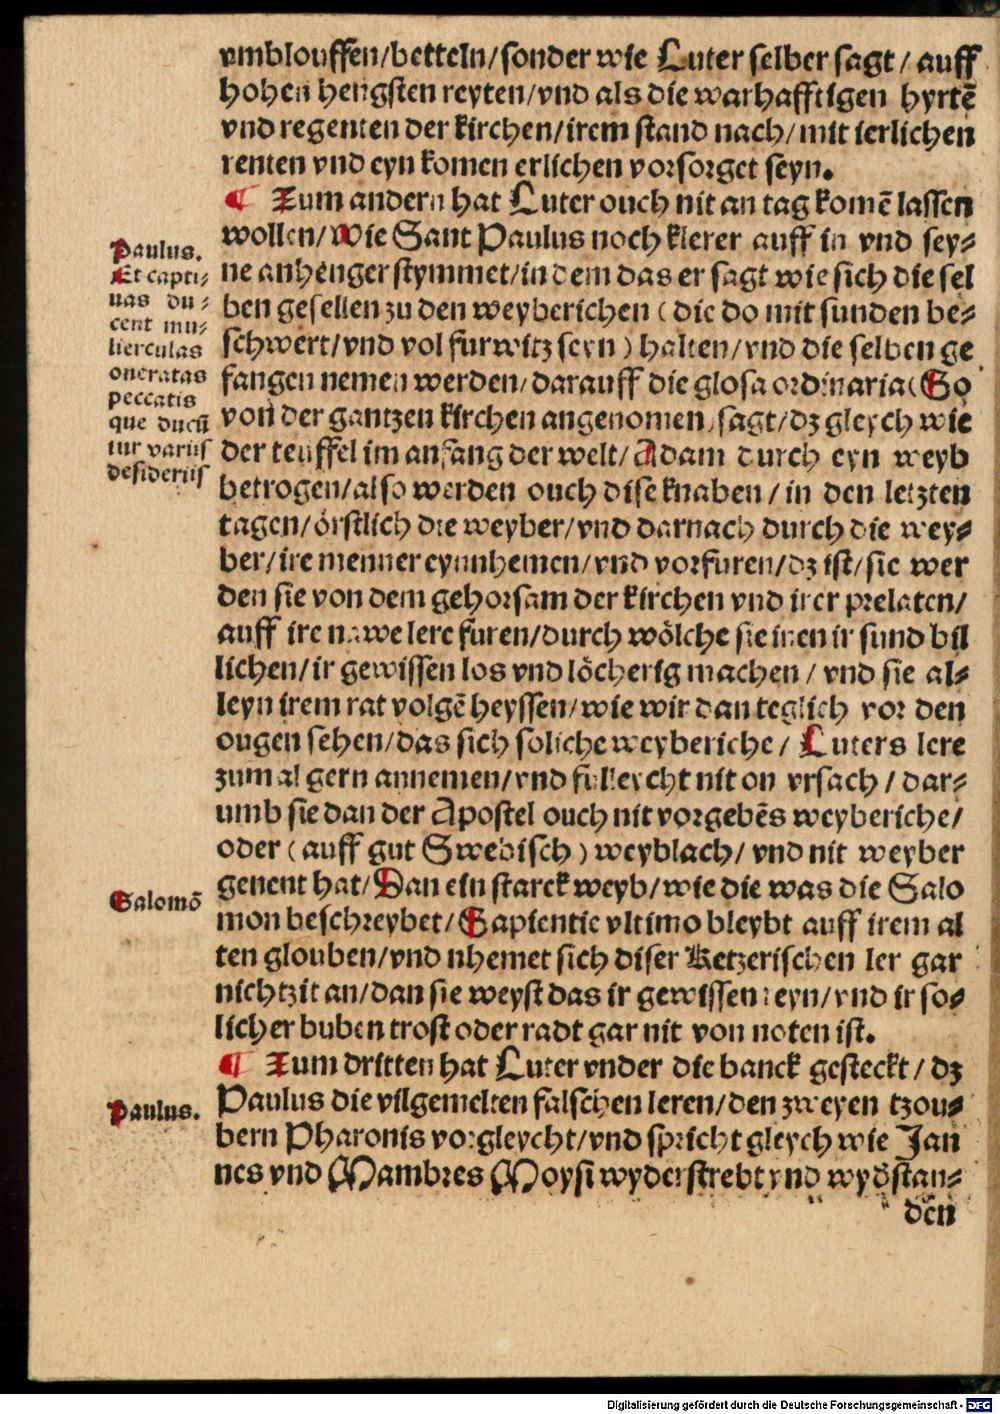 vmblouffen/betteln/sonder wie Luter selber sagt/ auff
hohen hengsten reyten/vnd als die warhafftigen hyrtē
vnd regenten der kirchen/irem stand nach/mit ierlichen
renten vnd eyn komen erlichen vorsorget seyn.
¶ Zum andern hat Luter ouch nit an tag komē lassen
wollen/Wie Sant Paulus noch klerer auff in vnd sey⸗
ne anhenger stymmet/in dem das er sagt wie sich die sel
ben gesellen zu den weyberichen (die do mit sunden be⸗
schwert/vnd vol furwitz seyn) halten/vnd die selben ge
fangen nemen werden/darauff die glosa ordinaria(So
von der gantzen kirchen angenomen) sagt/dz gleych wie
der teuffel im anfang der welt/Adam durch eyn weyb
betrogen/also werden ouch dise knaben/in den letzten
tagen/örstlich die weyber/vnd darnach durch die wey⸗
ber/ire menner eynnhemen/vnd vorfuren/dz ist/sie wer
den sie von dem gehorsam der kirchen vnd irer prelaten/
auff ire nawe lere furen/durch wölche sie inen ir sund bil
lichen/ir gewissen los vnd löcherig machen/vnd sie al⸗
leyn irem rat volgē heyssen/wie wir dan teglich vor den
ougen sehen/das sich soliche weyberiche/ Luters lere
zumal gern annemen/vnd filleycht nit on vrsach/dar⸗
umb sie dan der Apostel ouch nit vorgebēs weyberiche/
oder (auff gut Swebisch) weyblach/vnd nit weyber
genent hat/Dan ein starck weyb/wie die was die Salo
mon beschreybet/Sapientie vltimo bleybt auff irem al
ten glouben/vnd nhemet sich diser Ketzerischen ler gar
nichtzit an/dan sie weyst das ir gewissen reyn/vnd ir so⸗
licher buben trost oder radt gar nit von noten ist.
¶ Zum dritten hat Luter vnder die banck gesteckt/dz
Paulus die vilgemelten falschen leren/den zweyen tzou⸗
bern Pharonis vorgleycht/vnd spricht gleych wie Jan
nes vnd Mambres Moysi wyderstrebt vnd wyđstan⸗
den
Paulus.
Et capti⸗
uas du⸗
cent mu⸗
lierculas
oneratas
peccatis
que ducū
tur variis
desideriis
Salomō
Paulus.
Digitalisierung gefördert durch die Deutsche Forschungsgemeinschaft - DFG